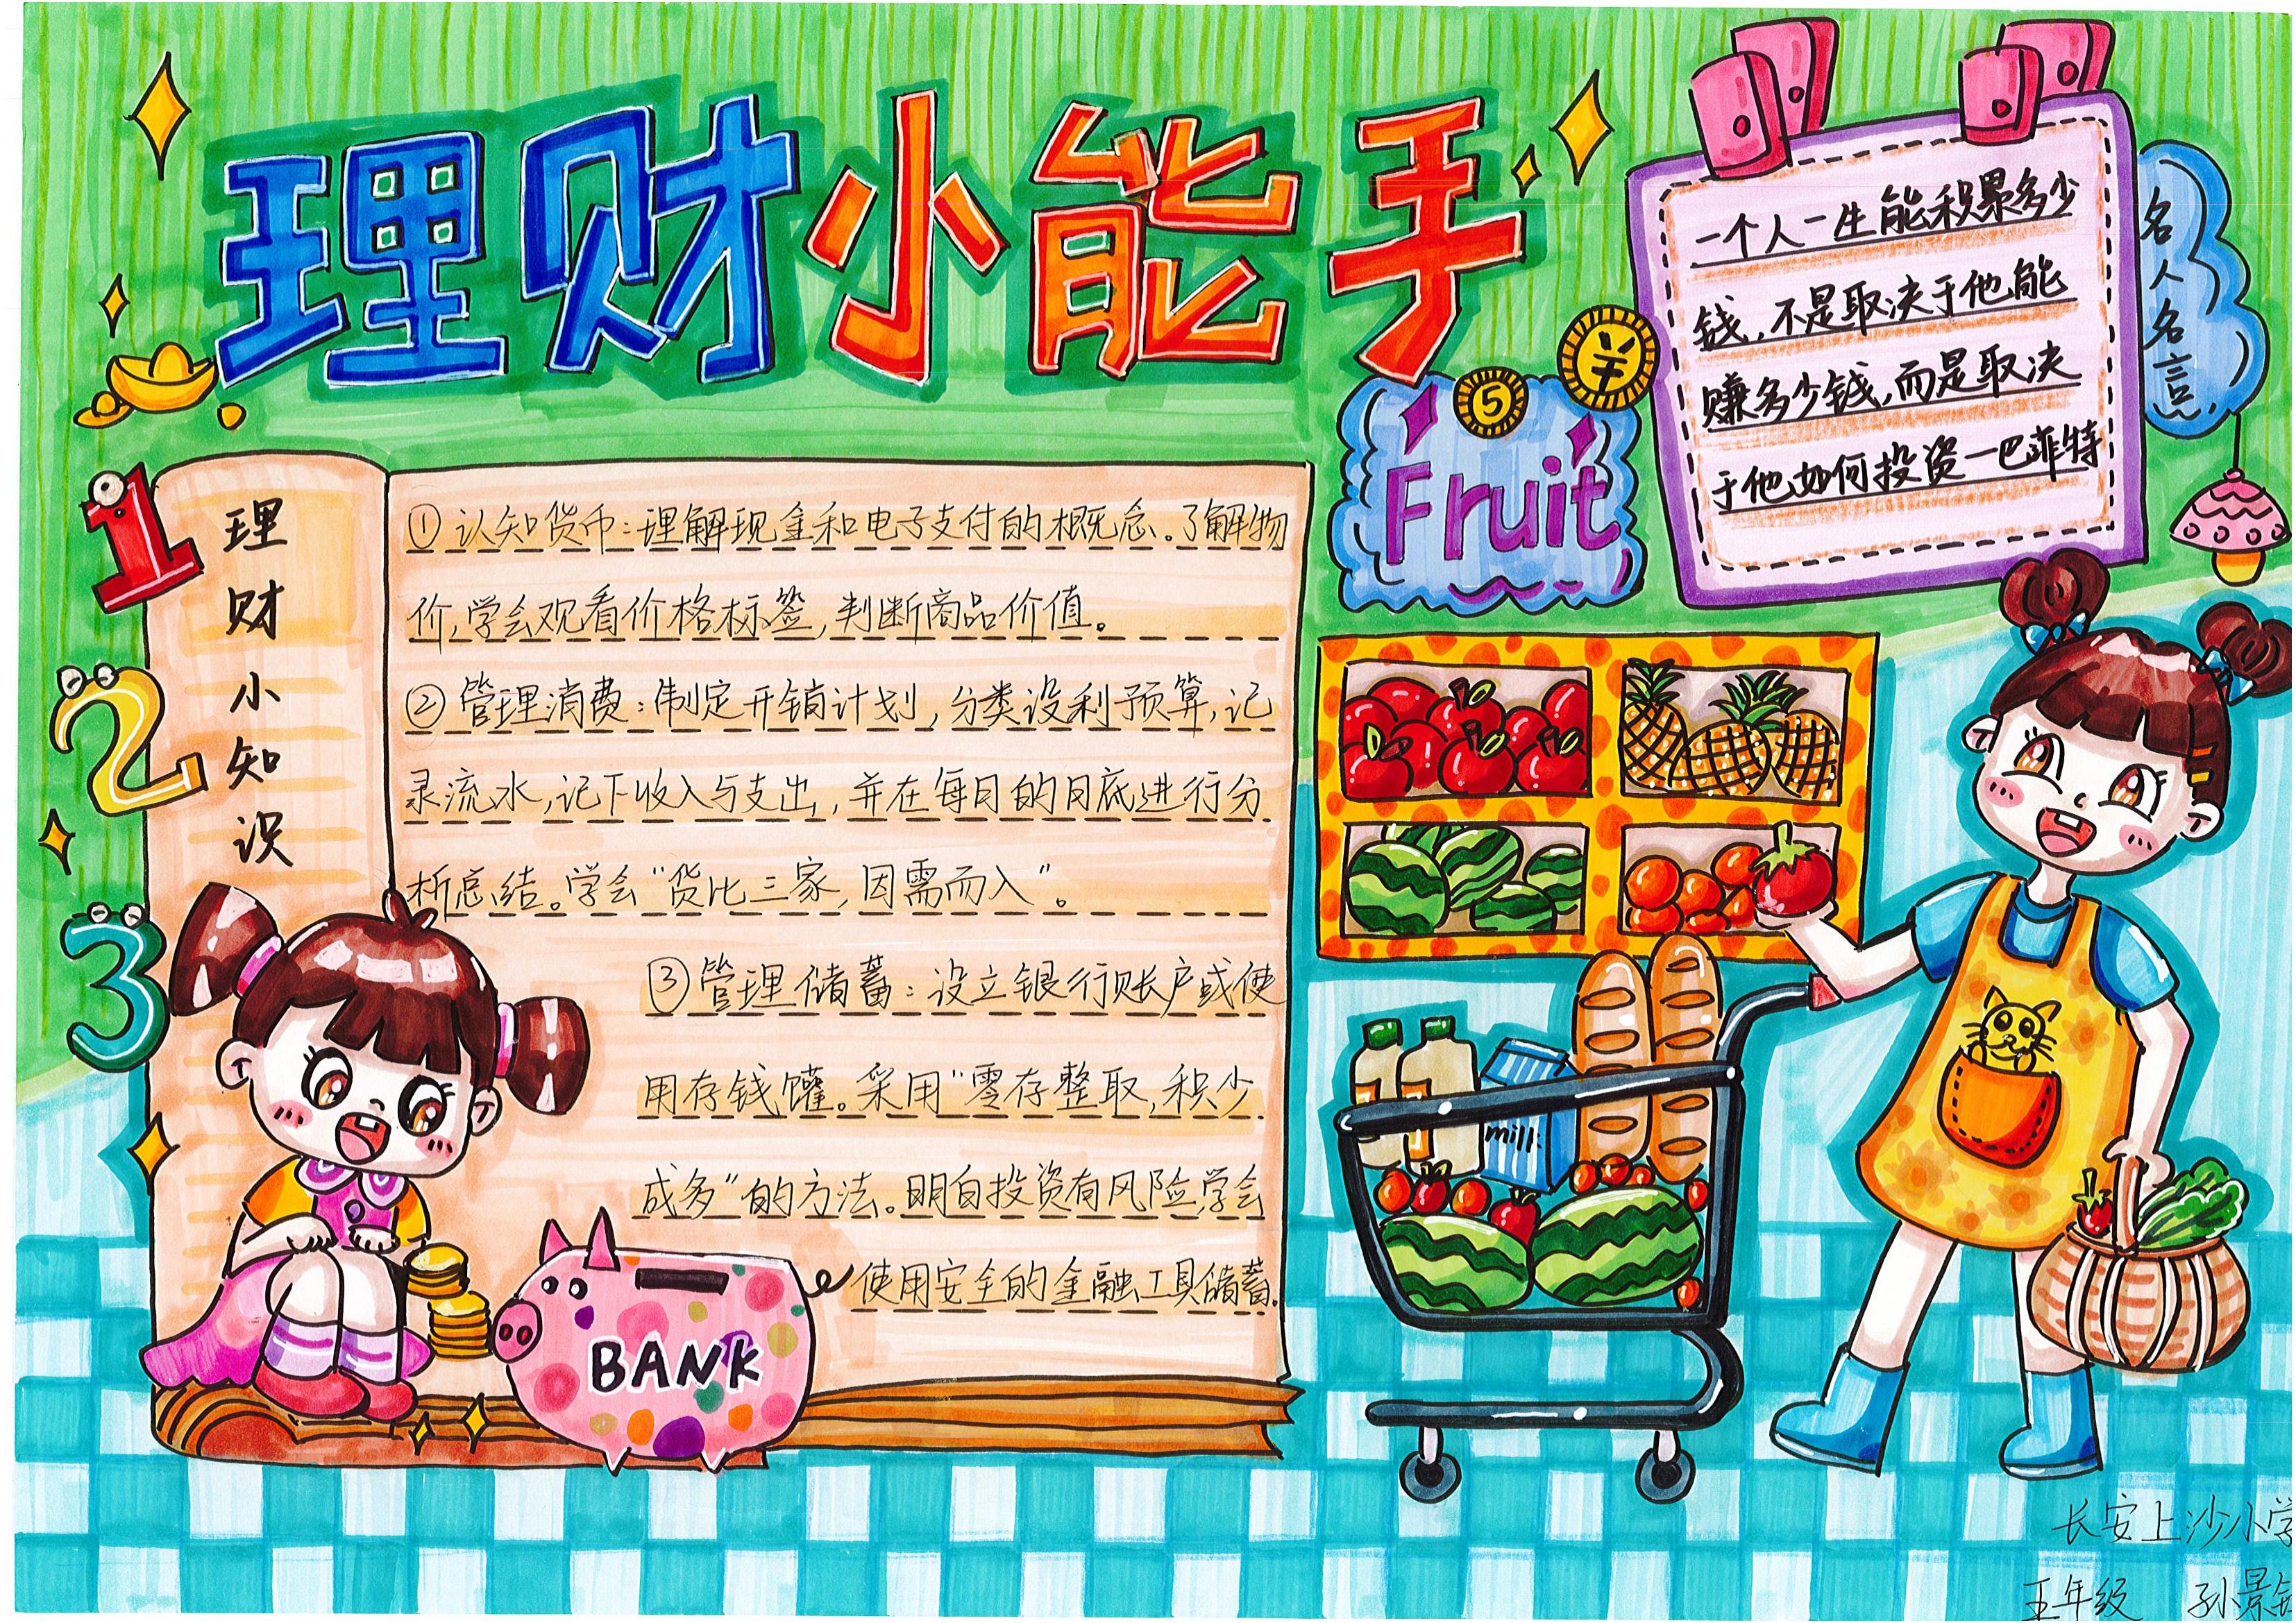 理财小能手
一个人一生能积累多少
钱,不是取决于他能
赚多少钱,而是取决
于他如何投资一巴菲特
名人名言
¥
5
Fruit
1
2
3
理财小知识
①认知货币:理解现金和电子支付的概念。了解物
价,学会观看价格标签,判断商品价值。
②管理消费:制定开销计划,分类设利预算,记
录流水,记下收入与支出,并在每日的日底进行分
析总结。学会“货比三家,因需而入”。
③管理储蓄:设立银行账户或使
用存钱罐。采用“零存整取,积少
成多”的方法。明白投资有风险,学会
使用安全的金融工具储蓄.
BANK
milk
长安上沙小学
五年级 孙景